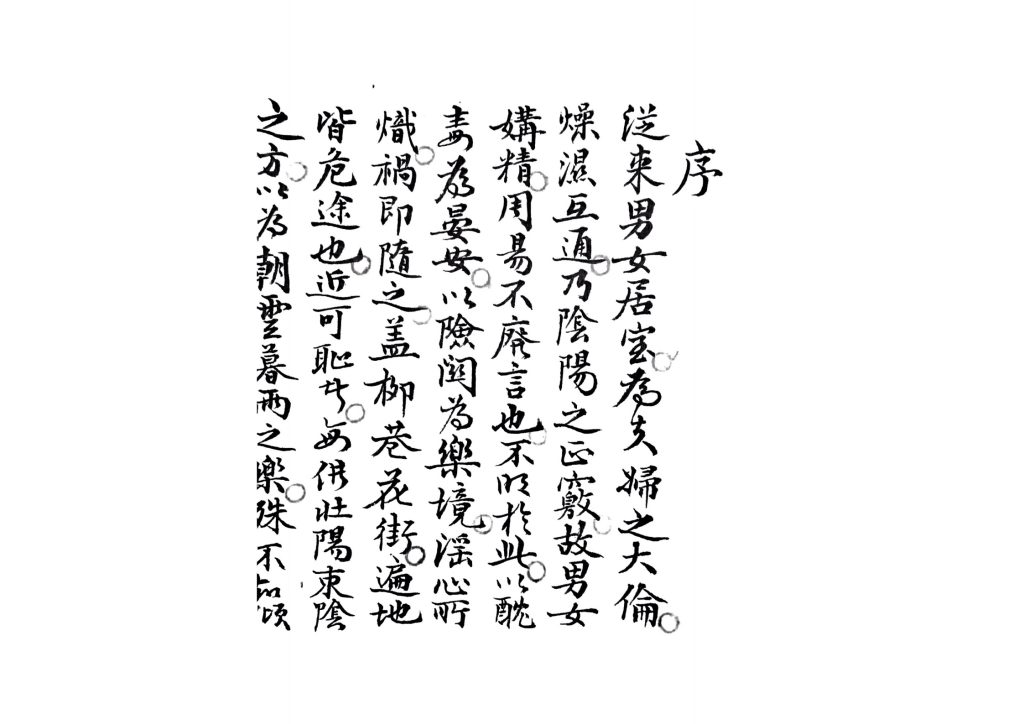 序
從来男女居室為夫婦之大倫
燥濕互通乃陰陽之正竅故男女
媾精周易不廢言也不明於此以酖
毒為晏安以險闼為樂境淫心所
熾禍即隨之盖柳巷花街遍地
皆危途也近可耻者每供壯陽束陰
之方以為朝雲暮雨之樂殊不知頃